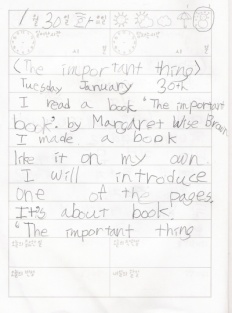 1월 30일 화요일
<The important thing>
Tuesday January 30th
I read a book "The important
book". by Margaret Wise Brown
I made a book
like it on my own
I will introduce
one of the pages.
It's about book.
"The important thing